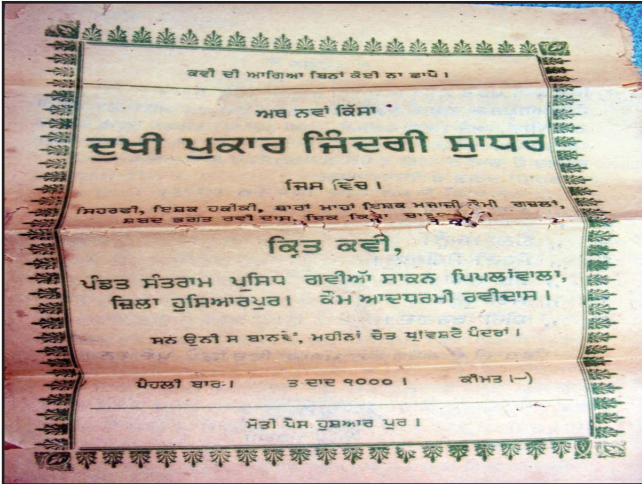 ਕਵੀ ਦੀ ਆਗਿਆ ਬਿਨਾਂ ਕੋਈ ਨਾ ਛਾਪੇ।
ਅਥ ਨਵਾਂ ਕਿੱਸਾ
ਦੁਖੀ ਪੁਕਾਰ ਜਿੰਦਗੀ ਸੁਾਧਰ
ਜਿਸ ਵਿੱਚ।
ਸਿਹਰਫੀ, ਇਸ਼ਕ ਹਕੀਕੀ, ਬਾਰਾਂ ਮਾਹਾਂ ਇਸ਼ਕ ਮਜਾਜੀ ਕੌਮੀ ਗਜ਼ਲਾਂ,
ਸ਼ਬਦ ਭਗਤ ਰਵੀ ਦਾਸ, ਇਕ
ਕ੍ਰਿਤ ਕਵੀ,
ਪੰਡਤ ਸੰਤਰਾਮ ਪ੍ਰਸਿਧ ਗਵੀਆੱ ਸਾਕਨ ਪਿਪਲਾਂਵਾਲਾ,
ਜ਼ਿਲਾ ਹੁਸਿਆਰਪੁਰ। ਕੌਮ ਆਦਧਰਮੀ ਰਵੀਦਾਸ।
ਸਨ ਉਨੀ ਸ ਬਾਨਵੇਂ, ਮਹੀਨਾਂ ਚੇਤ ਪ੍ਰਵਿਸ਼ਟੇ ਪੰਦਰਾਂ।
ਪੈਹਲੀ ਬਾਰ। ਤ ਦਾਦ ੧੦੦੦। ਕੀਮਤ ।-)
ਮੋਤੀ ਪ੍ਰੈਸ ਹੁਸ਼ਆਰ ਪੁਰ।